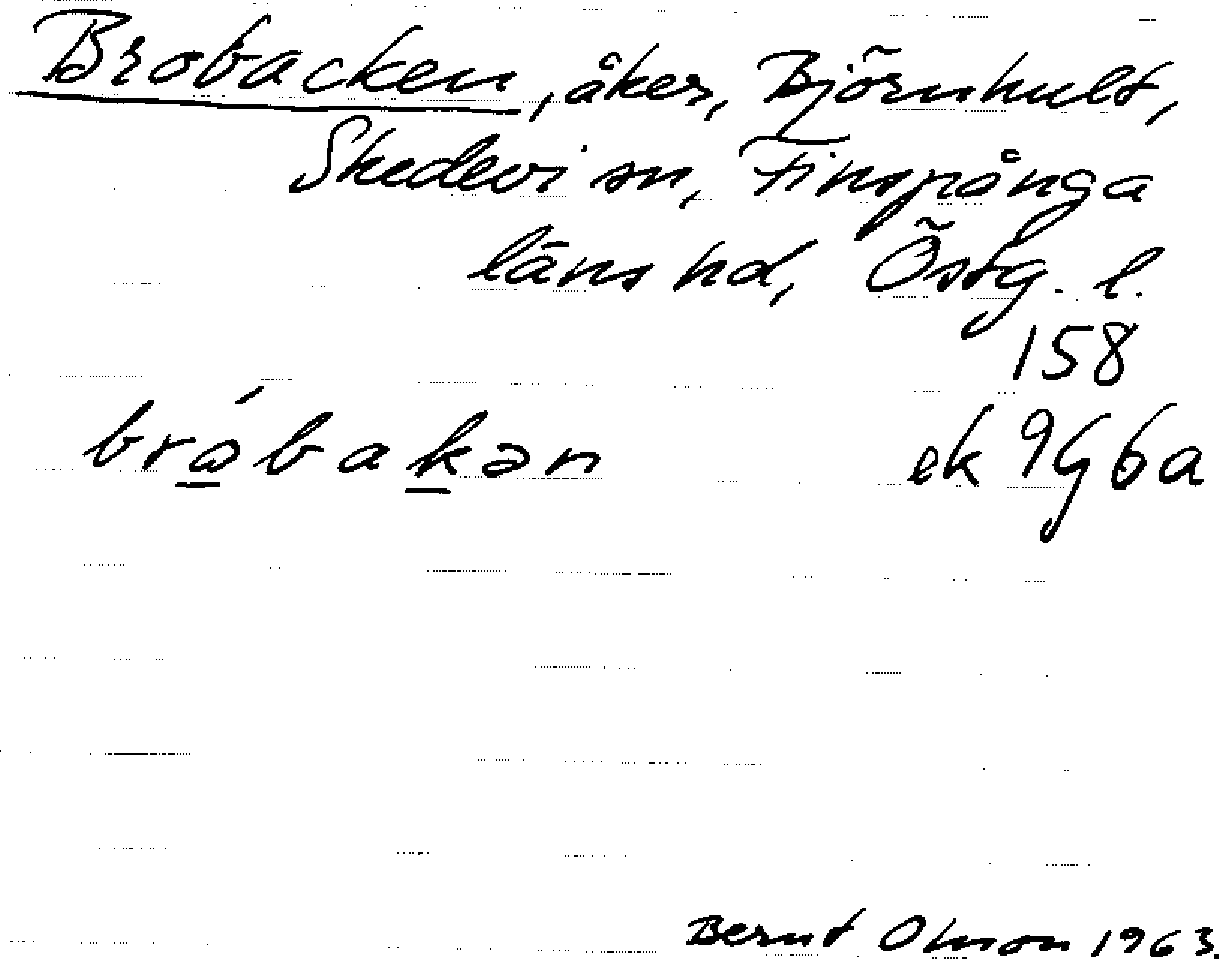 Brobacken, åker, Björnhult,
Skedevi sn, Finspånga
läns hd, Östg. l.
158
bròbakən ek 9G6a
Bernt Olsson 1963.